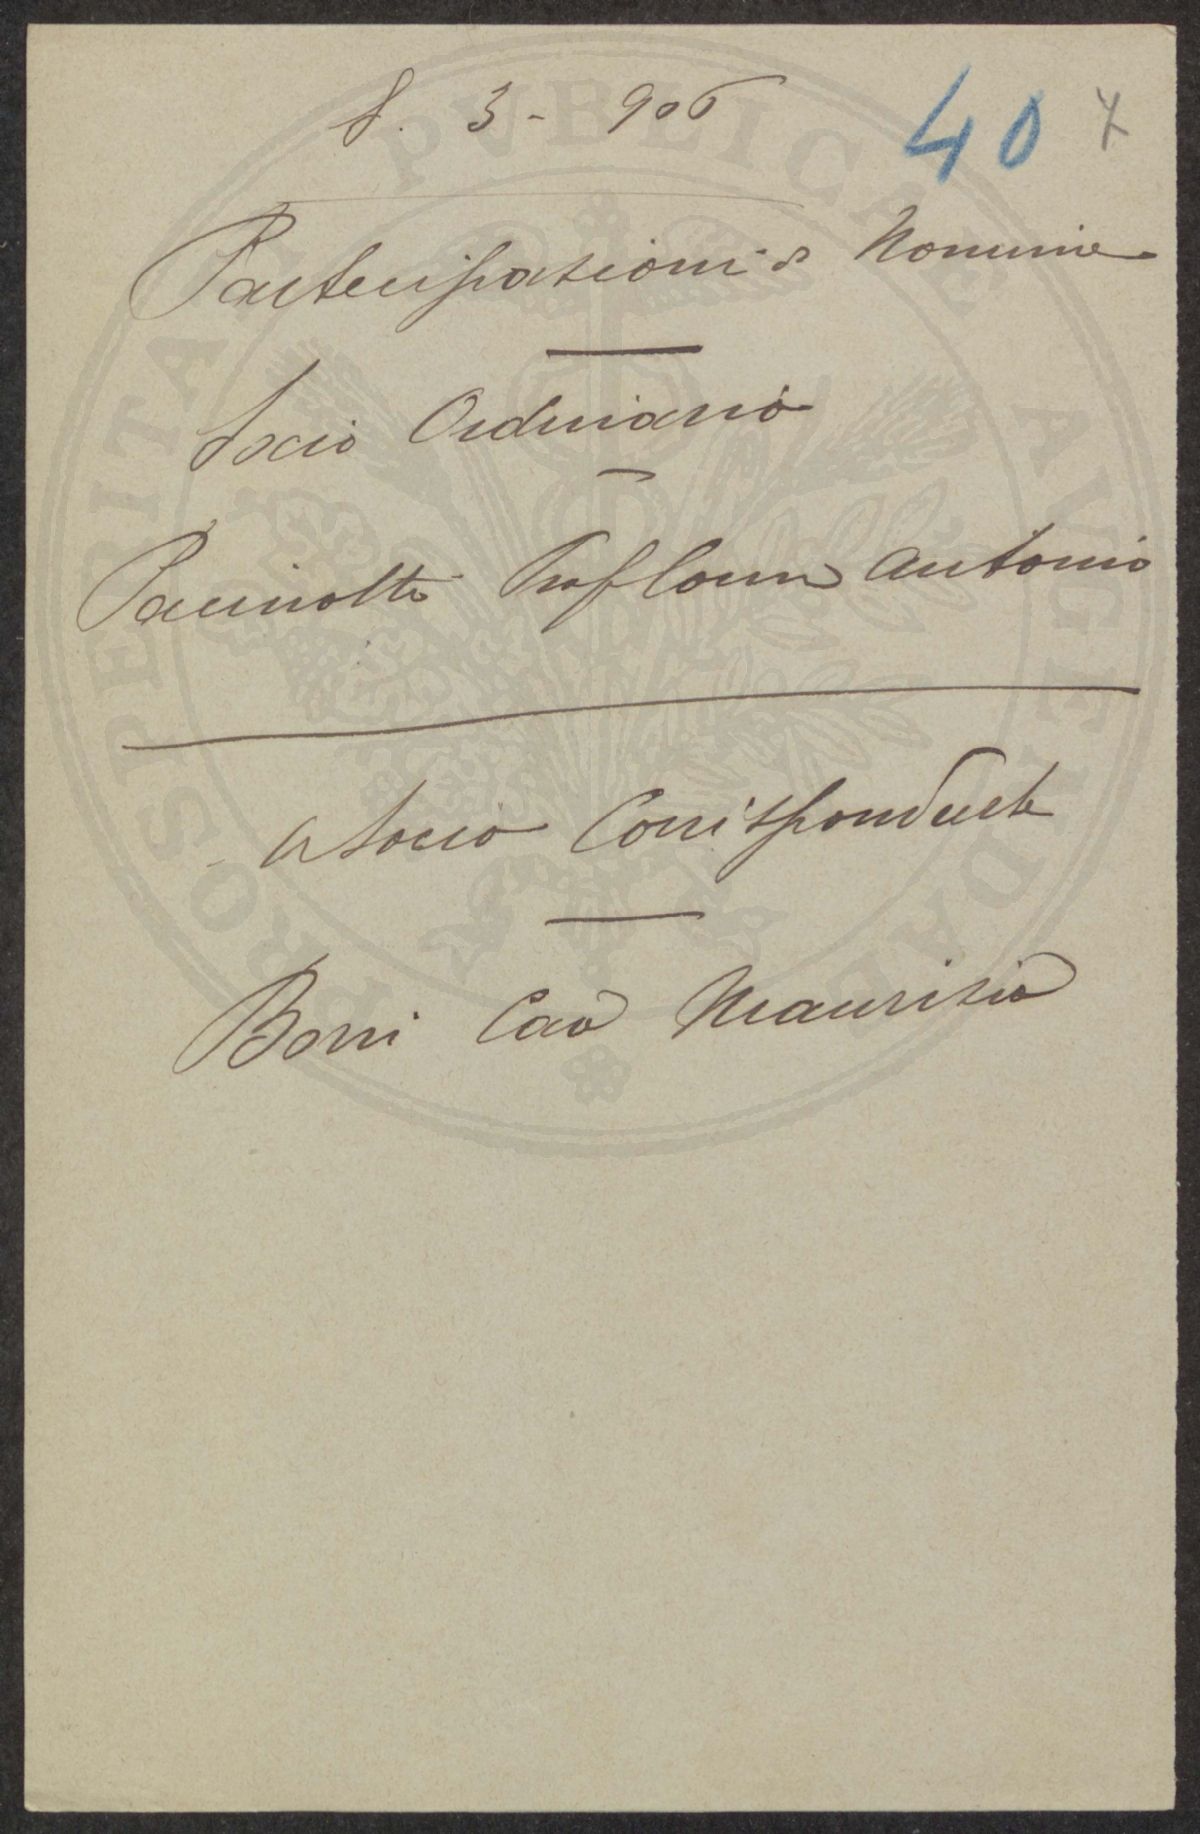 8. 3 - 906
40
Partecipazioni di Nomine
Socio Ordinario
Pacinotti Prof Comm Antonio
a Socio Corrispondente
Borri Cav Maurizio
PROSPERITATI PVBLICAE AVGENDAE